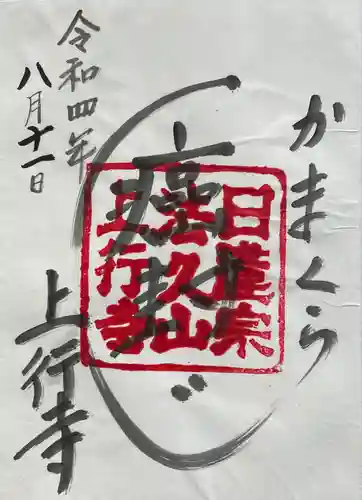 かまくら
日蓮宗
法久山
上行寺
令和四年
八月十一日
上行寺